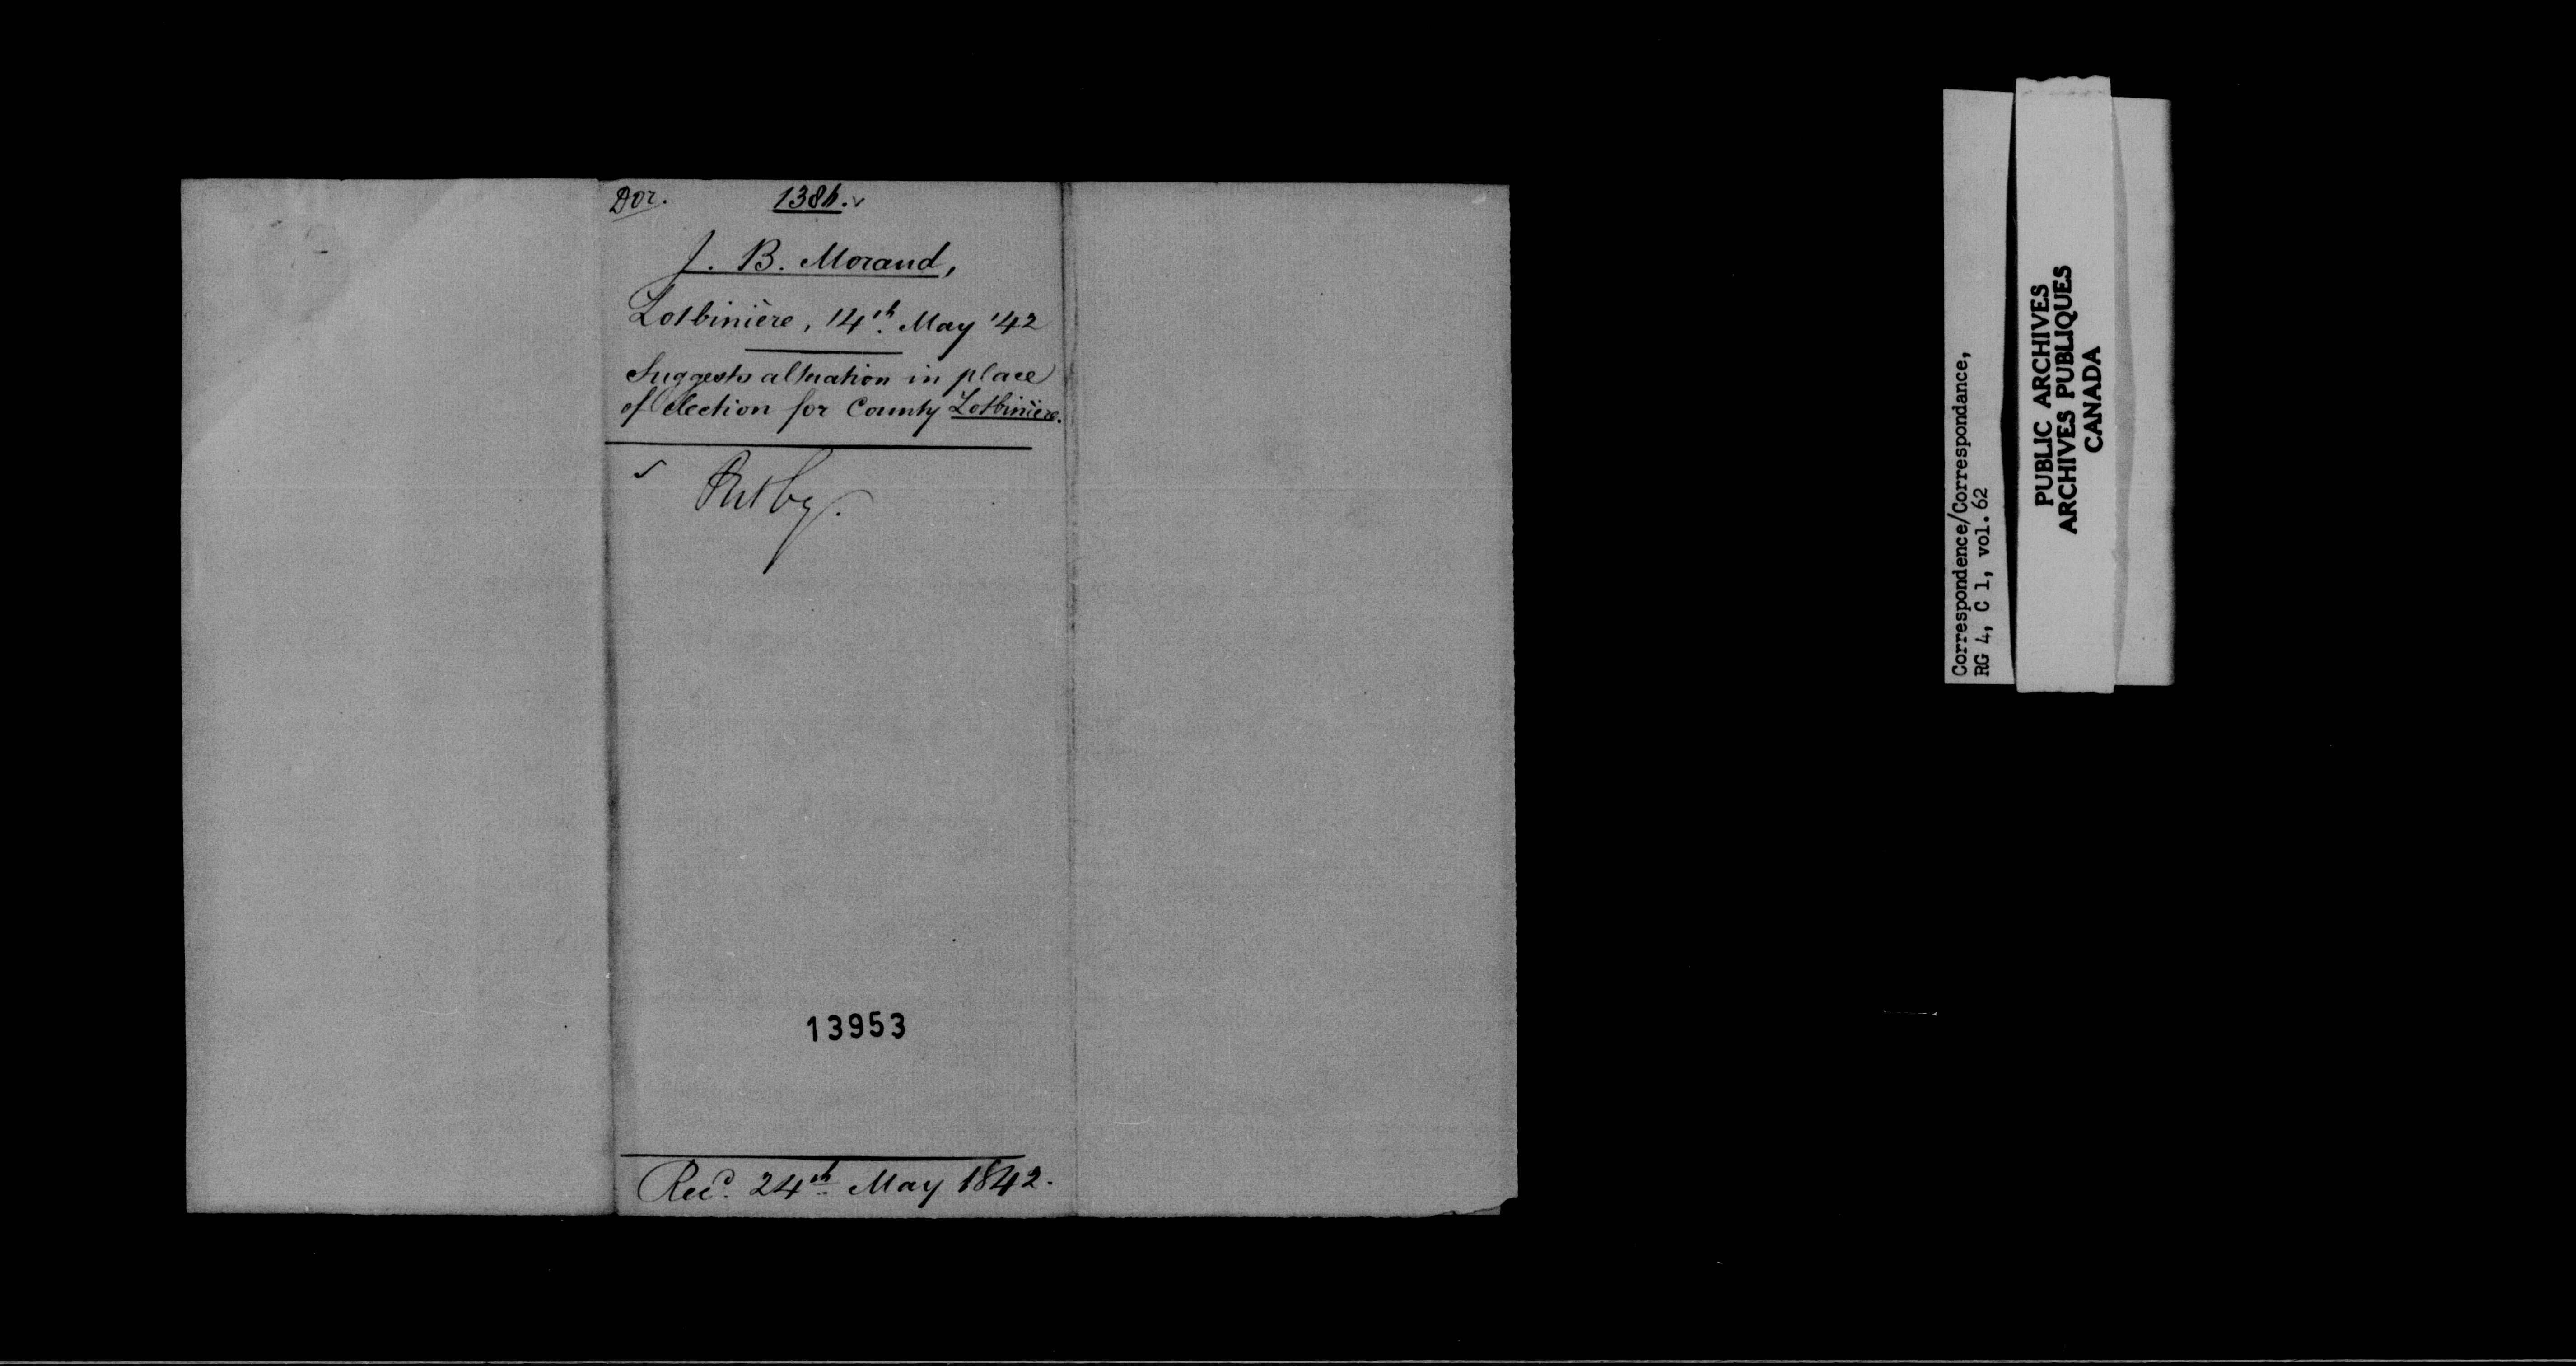 Dor. 1386.
J. B. Morand,
Lotbinière, 14th May '42
Suggests alteration in place
of election for County Lotbinière.
Put by.
13953
Recd. 24th May 1842.
Correspondence/Correspondance,
RG 4, C 1, vol. 62
PUBLIC ARCHIVES
ARCHIVES PUBLIQUES
CANADA